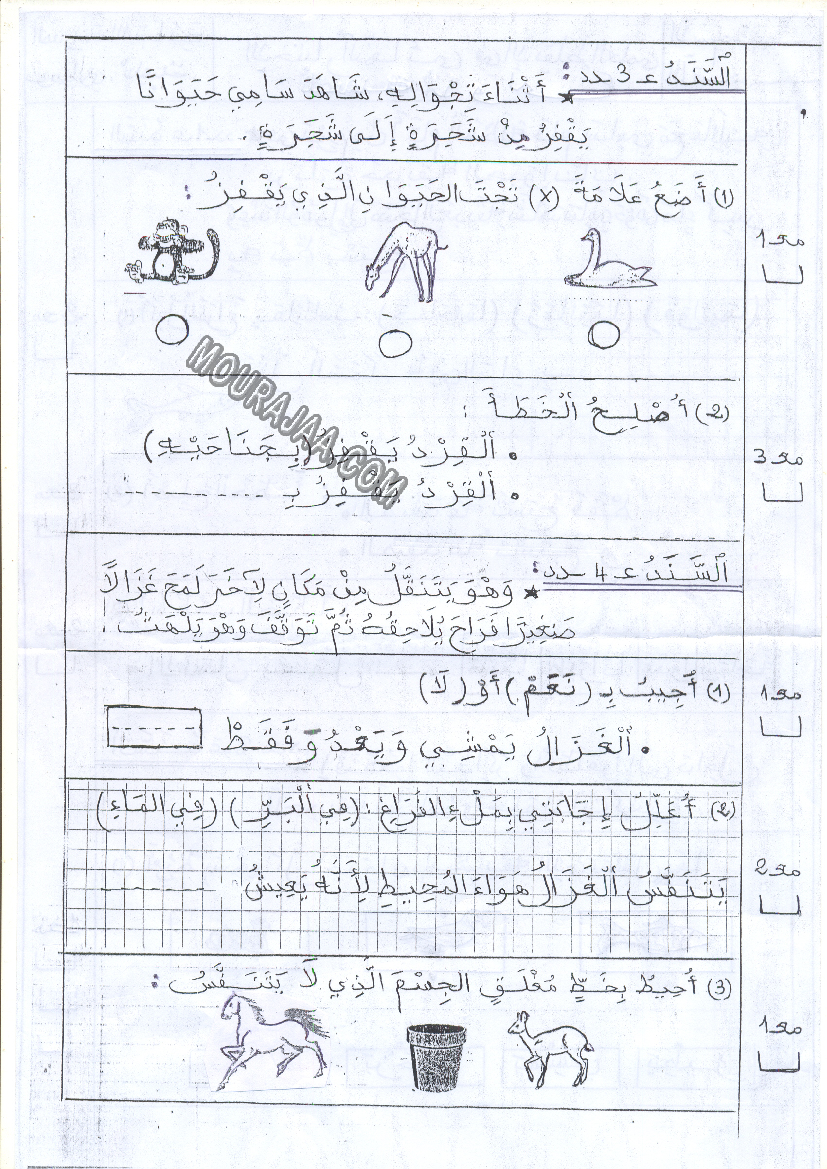 اَلسَّنَدُ عـ3ـدد:
★ أَثْنَاءَ تِجْوَالِهِ، شَاهَدَ سَامِي حَيَوَانًا
يَقْفِزُ مِنْ شَجَرَةٍ إِلَى شَجَرَةٍ
(1) أَضَعُ عَلَامَةَ (x) تَحْتَ الحَيَوَانِ الَّذِي يَقْفِزُ :
معـ1
(2) أُصْلِحُ اْلْخَطَأَ :
• اَلْقِرْدُ يَقْفِزُ (بِجَنَاحَيْهِ)
• اَلْقِرْدُ يَقْفِزُ بِ
معـ3
MOURAJAA.COM
اَلسَّنَدُ عـ4ـدد:
★ وَهْوَ يَتَنَقَّلُ مِنْ مَكَانٍ لِآخَرَ لَمَحَ غَزَالًا
صَغِيرًا فَرَاحَ يُلَاحِقُهُ ثُمَّ تَوَقَّفَ وَهْوَ يَلْهَثُ.
(1) أُجِيبُ بِـ (نَعَمْ) أَوْ (لَا)
معـ1
• اَلْغَزَالُ يَمْشِي وَ يَعْدُو فَقَطْ
(2) أُعَلِّلُ إِجَابَتِي بِمَلْءِ الفَرَاغِ : (فِي اْلْبَرِّ) (فِي المَاءِ)
يَتَنَفَّسُ اْلْغَزَالُ هَوَاءَ المُحِيطِ لِأَنَّهُ يَعِيشُ
معـ2
(3) أُحِيطُ بِخَطٍّ مُغْلَقٍ الجِسْمَ الَّذِي لَا يَتَنَفَّسُ :
معـ1